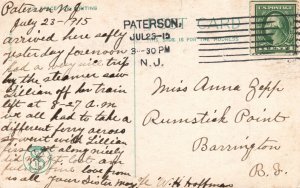 Paterson N.J.
July 23-1915
arrived here safly
yesterday forenoon
had a very nice trip
by the steamer saw
Lillian off her train
left at 8-27 A.M
we all had to take a
different ferry across
so went with Lillian
first
along nicely
love from
us all your Sister May
The W.H. Hoffman
PATERSON,
JUL 23-15
3-30 PM
N.J.
POST CARD
FOR THE ADDRESS
Miss Anna Zepp
Rumstick Point
Barrington
R.I.